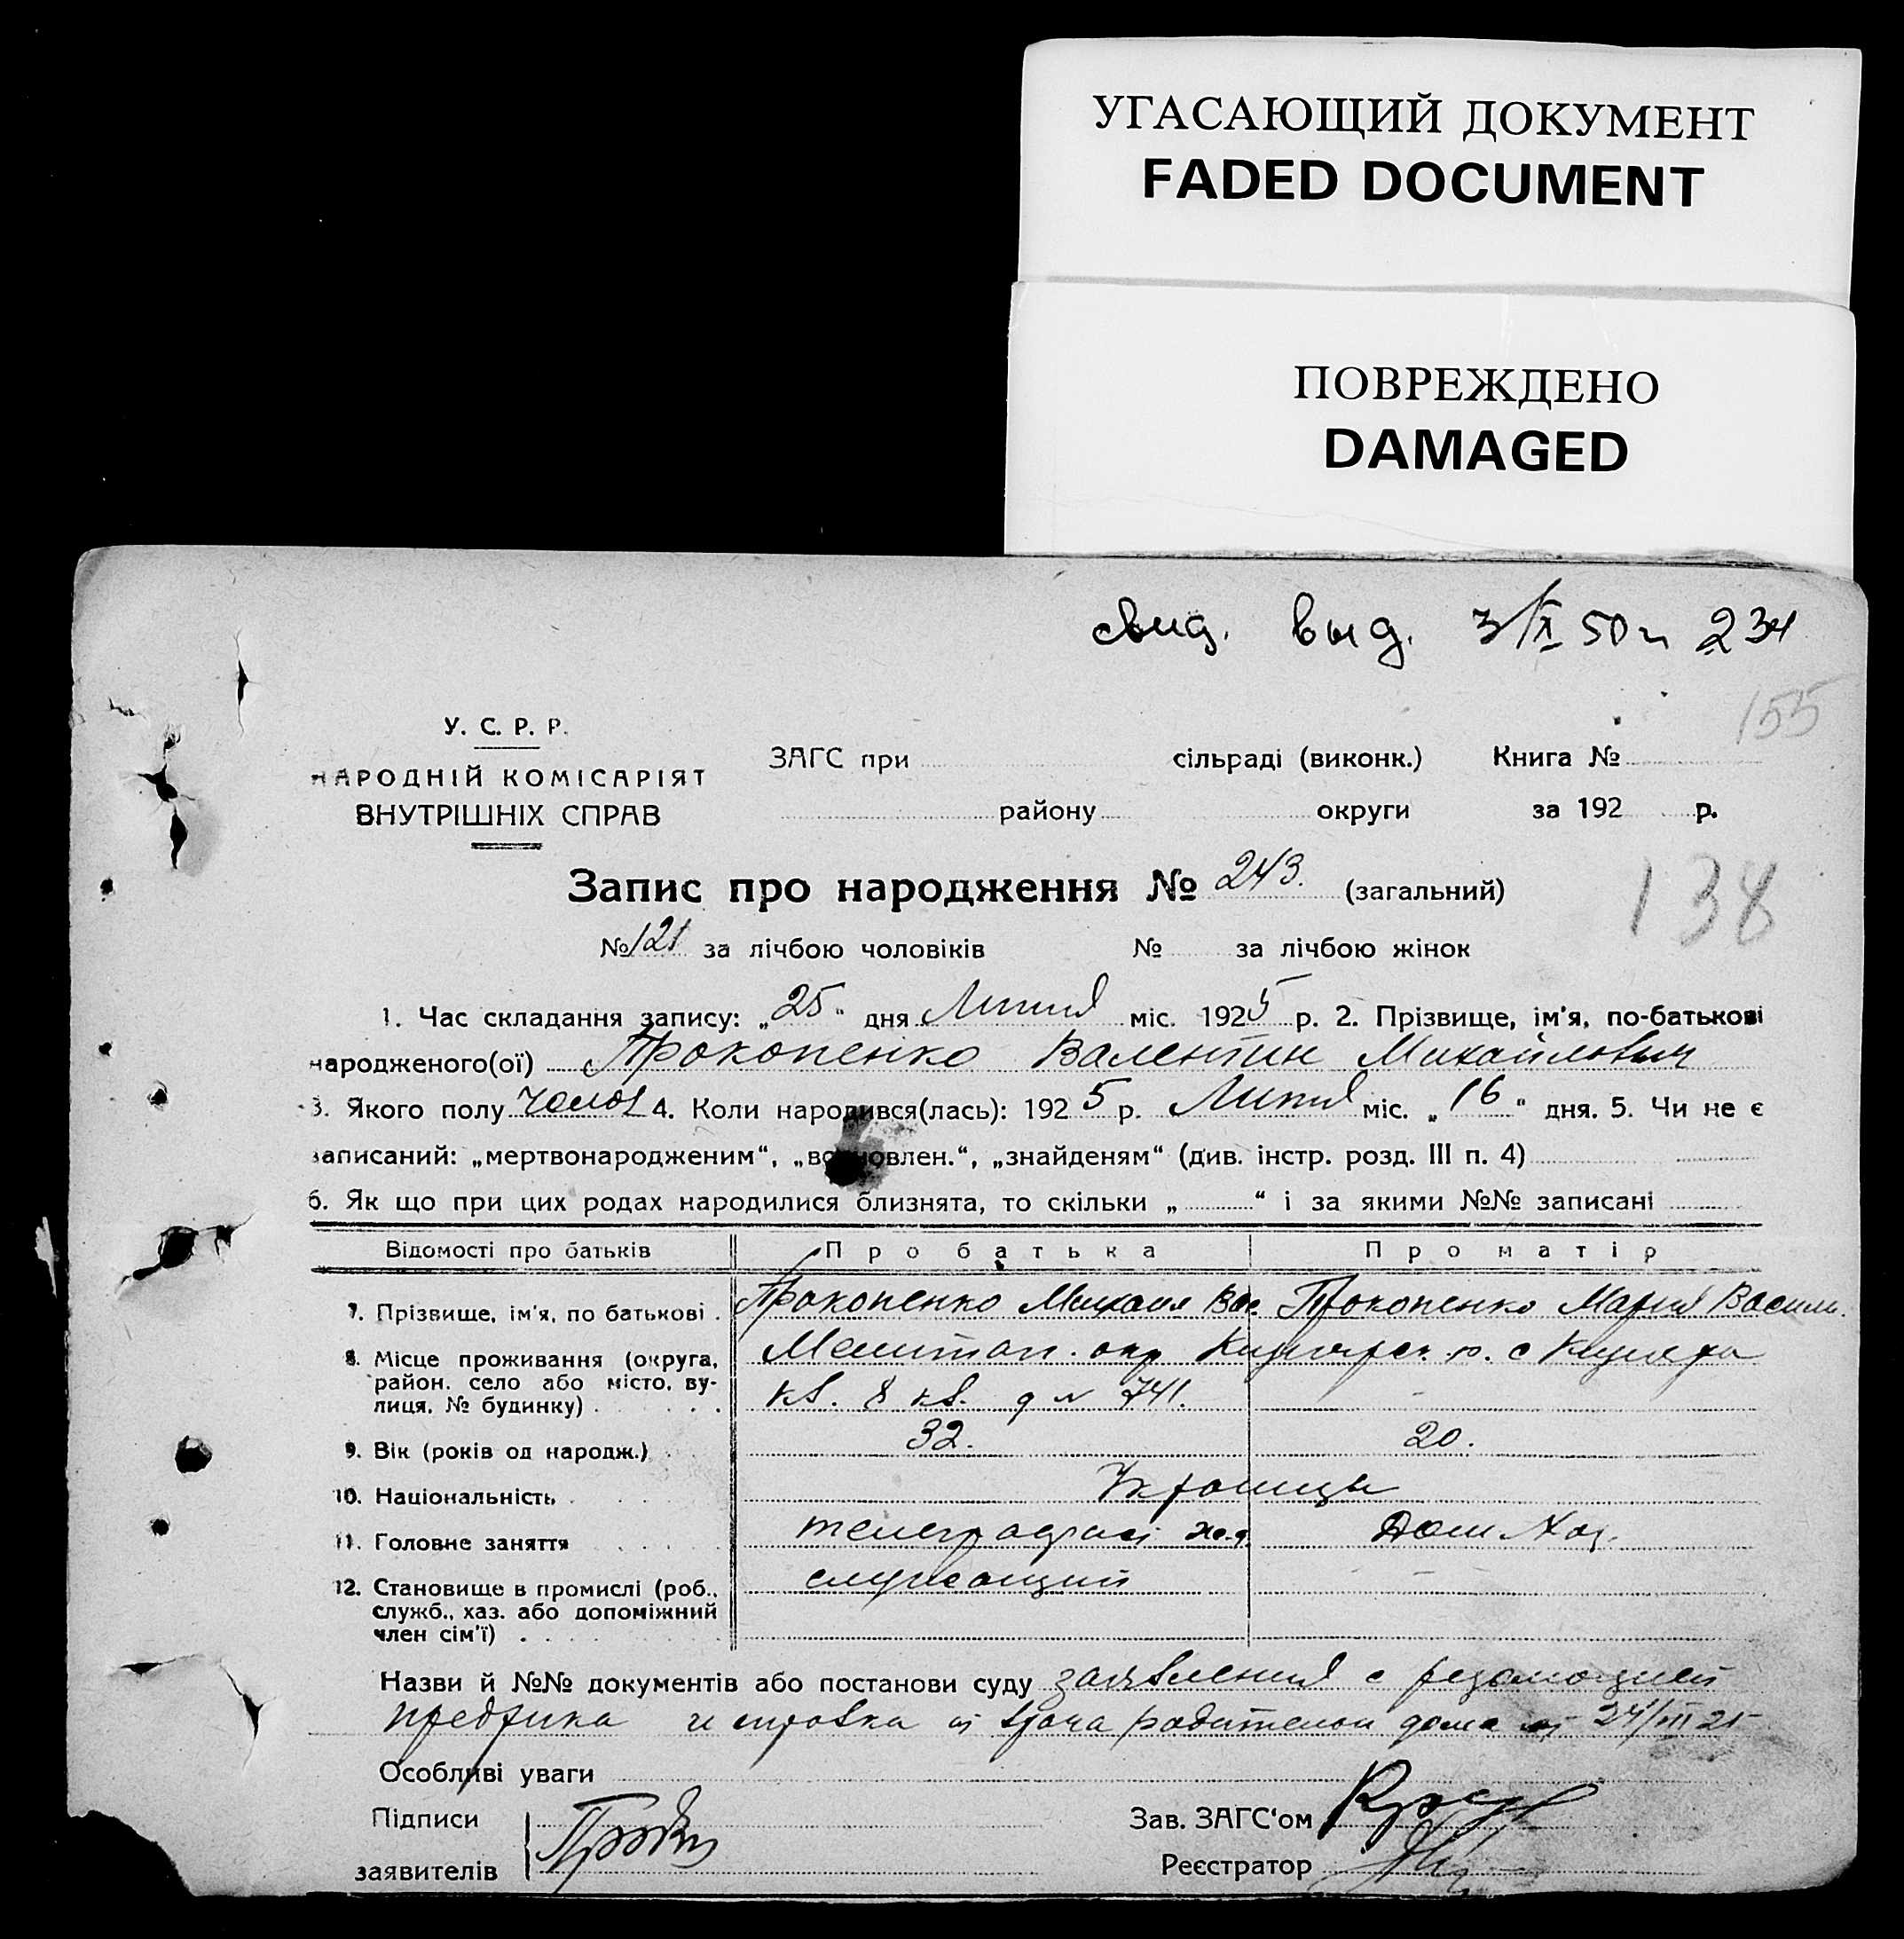 УГАСАЮЩИЙ ДОКУМЕНТ
FADED DOCUMENT
ПОВРЕЖДЕНО
DAMAGED
свид. выд. 3/X 50 г 234
155
У. С. Р. Р.
НАРОДНІЙ КОМІСАРІЯТ
ВНУТРІШНІХ СПРАВ
ЗАГС при сільраді (виконк.) Книга №
району округи за 192 р.
Запис про народження № 243. (загальний)
138
№ 121 за лічбою чоловіків № за лічбою жінок
1. Час складання запису: „25" дня Липня міс. 1925 р. 2. Прізвище, ім'я, по-батькові
народженого(ої) Прокопенко Валентин Михайлович
3. Якого полу чолов 4. Коли народився(лась): 1925 р. Липня міс. „16" дня. 5. Чи не є
записаний: „мертвонародженим", „в новлен.", „знайденям" (див. інстр. розд. III п. 4)
6. Як що при цих родах народилися близнята, то скільки „ " і за якими №№ записані
Відомості про батьків Про батька Про матір
7. Прізвище, ім'я, по батькові . Прокопенко Михаил Вас. Прокопенко Мария Васил.
8. Місце проживання (округа, район, село або місто, вулиця, № будинку) Мелитоп. окр с
кв. 8 кв. д № 741.
9. Вік (років од народж.) 32. 20.
10. Національність Украинцы
11. Головне заняття телеграфист ж.д. Дом. Хоз.
12. Становище в промислі (роб., служащий
служб., хаз. або допоміжний
член сім'ї)
Назви й №№ документів або постанови суду заявления с резолюцией
предрика и справка от врача родительн дома от 24/
Особливі уваги
Підписи
заявителів
Зав. ЗАГС'ом
Реєстратор